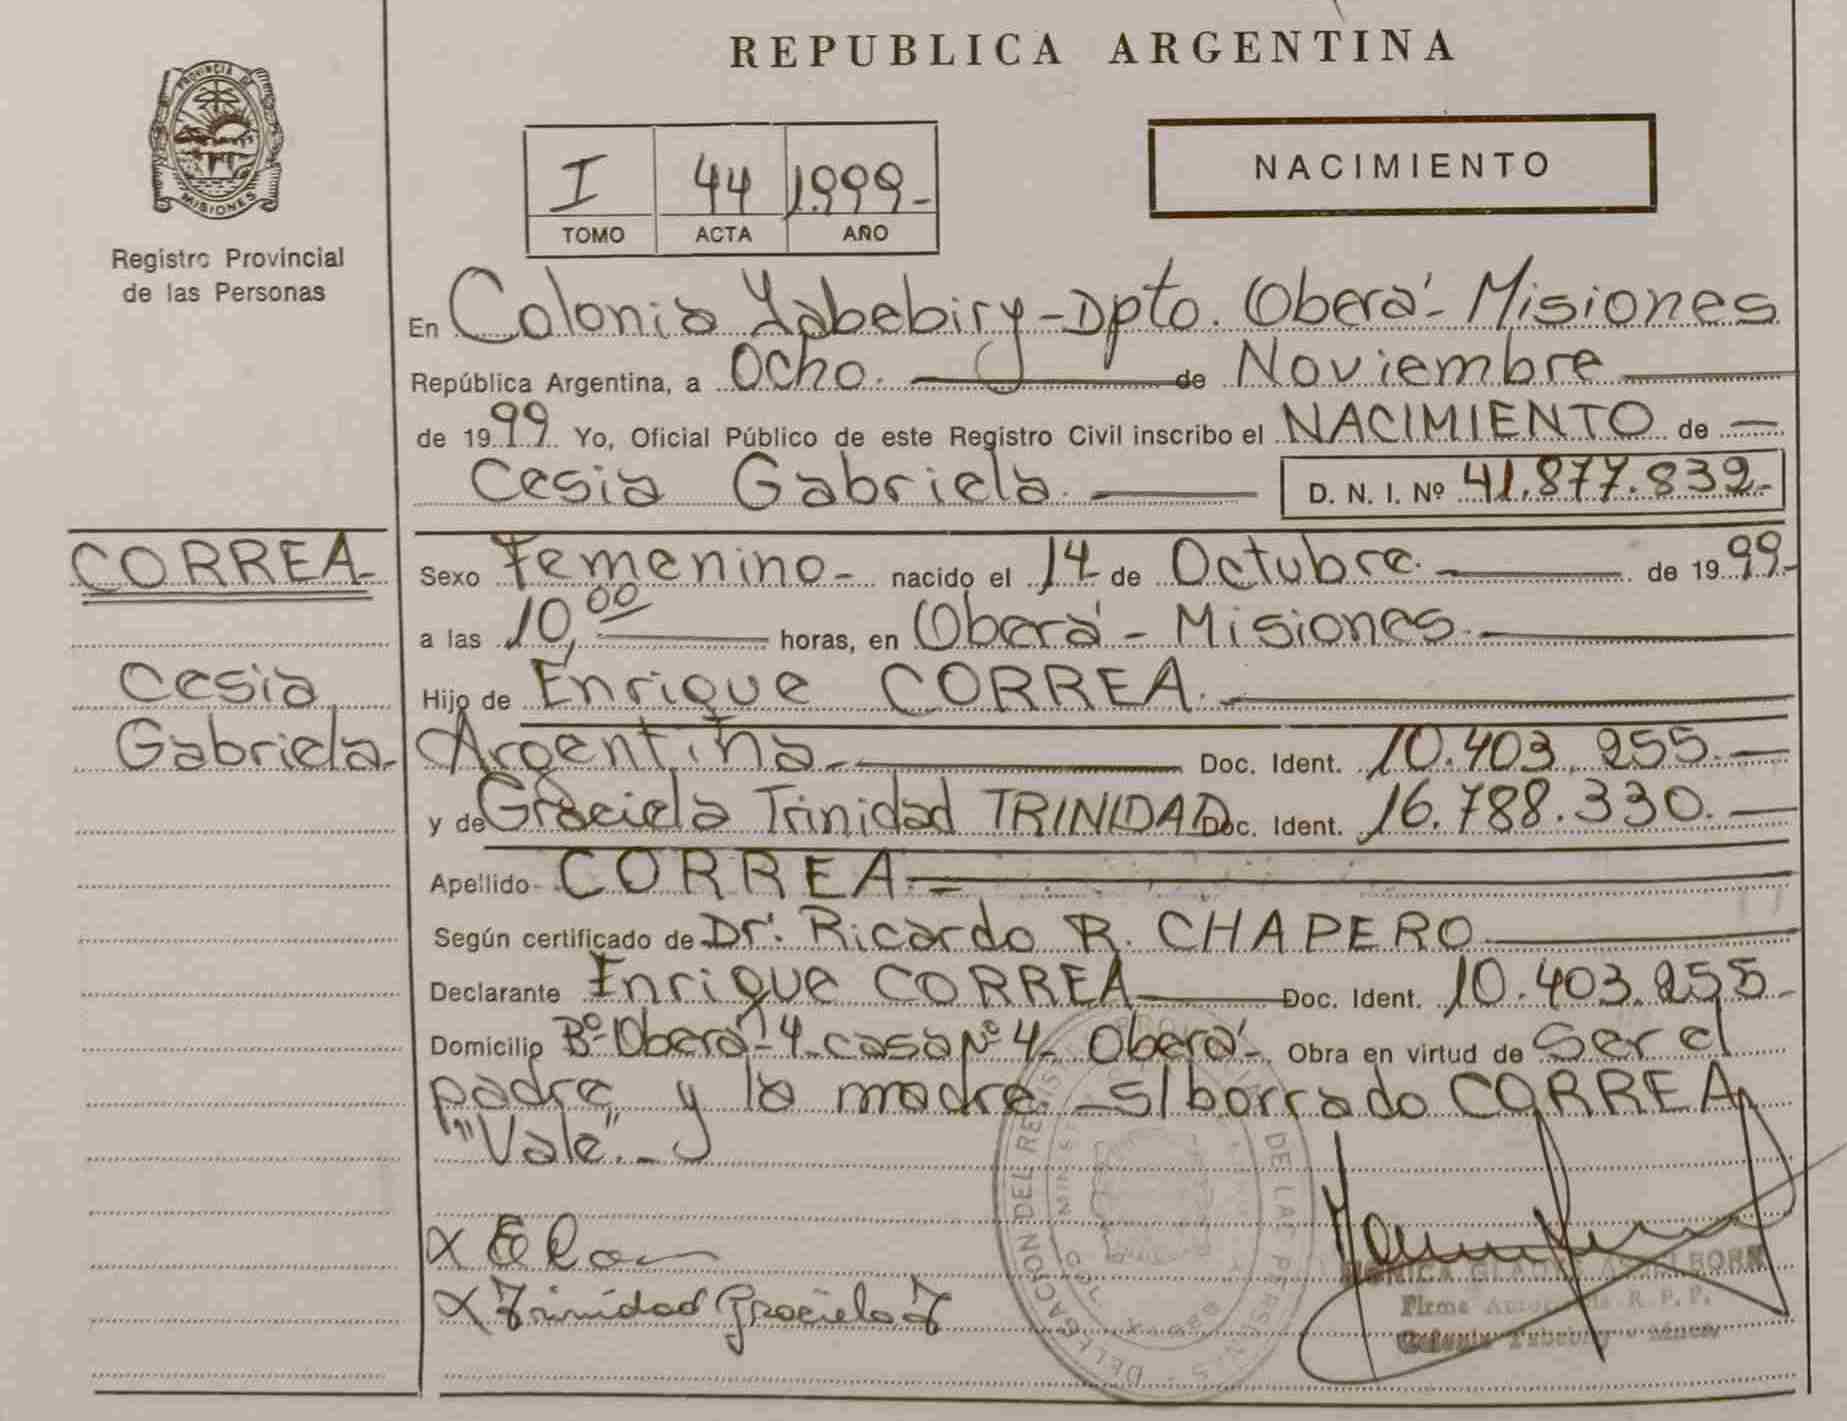 REPUBLICA ARGENTINA
PROVINCIA DE
MISIONES
Registro Provincial
de las Personas
NACIMIENTO
I 44 1.999-
TOMO ACTA AÑO
En Colonia Yabebiry-Dpto. Oberá-Misiones
República Argentina, a Ocho. de Noviembre
de 1999 Yo, Oficial Público de este Registro Civil inscribo el NACIMIENTO de
Cesia Gabriela. D. N. I. Nº 41.877.832-
CORREA-
Cesia
Gabriela-
Sexo Femenino- nacido el 14 de Octubre. de 1999-
a las 10,00 horas, en Oberá - Misiones.
Hijo de Enrique CORREA.
Argentina- Doc. Ident. 10.403.255.-
y de Graciela Trinidad TRINIDAD Doc. Ident. 16.788.330.-
Apellido CORREA-
Según certificado de Dr. Ricardo R. CHAPERO
Declarante Enrique CORREA Doc. Ident. 10.403.255-
Domicilio Bº Oberá-4-casa Nº 4- Oberá- Obra en virtud de ser el
padre y la madre -s/borrado CORREA
"Vale"-
x E Co
x Trinidad Graciela T
DELEGACION DEL REGISTRO DE LAS PERSONAS
Firma R. P. P.
Colonia Yabebiry - Mnes.